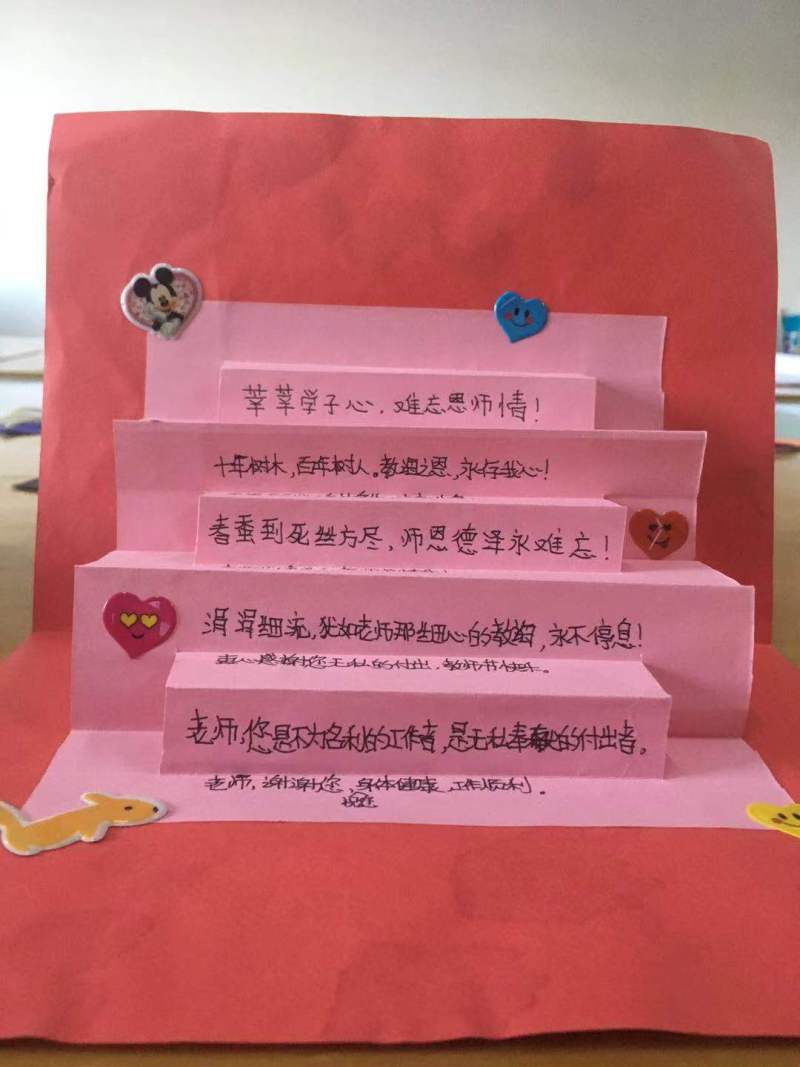 莘莘学子心，难忘恩师情！
十年树木，百年树人。教诲之恩，永存我心！
春蚕到死丝方尽，师恩德泽永难忘！
涓涓细流，犹如老师那细心的教诲，永不停息！
衷心感谢您无私的付出，教师节快乐。
老师，您是不为名利的工作者，是无私奉献的付出者。
老师，谢谢您，身体健康，工作顺利。
祝您